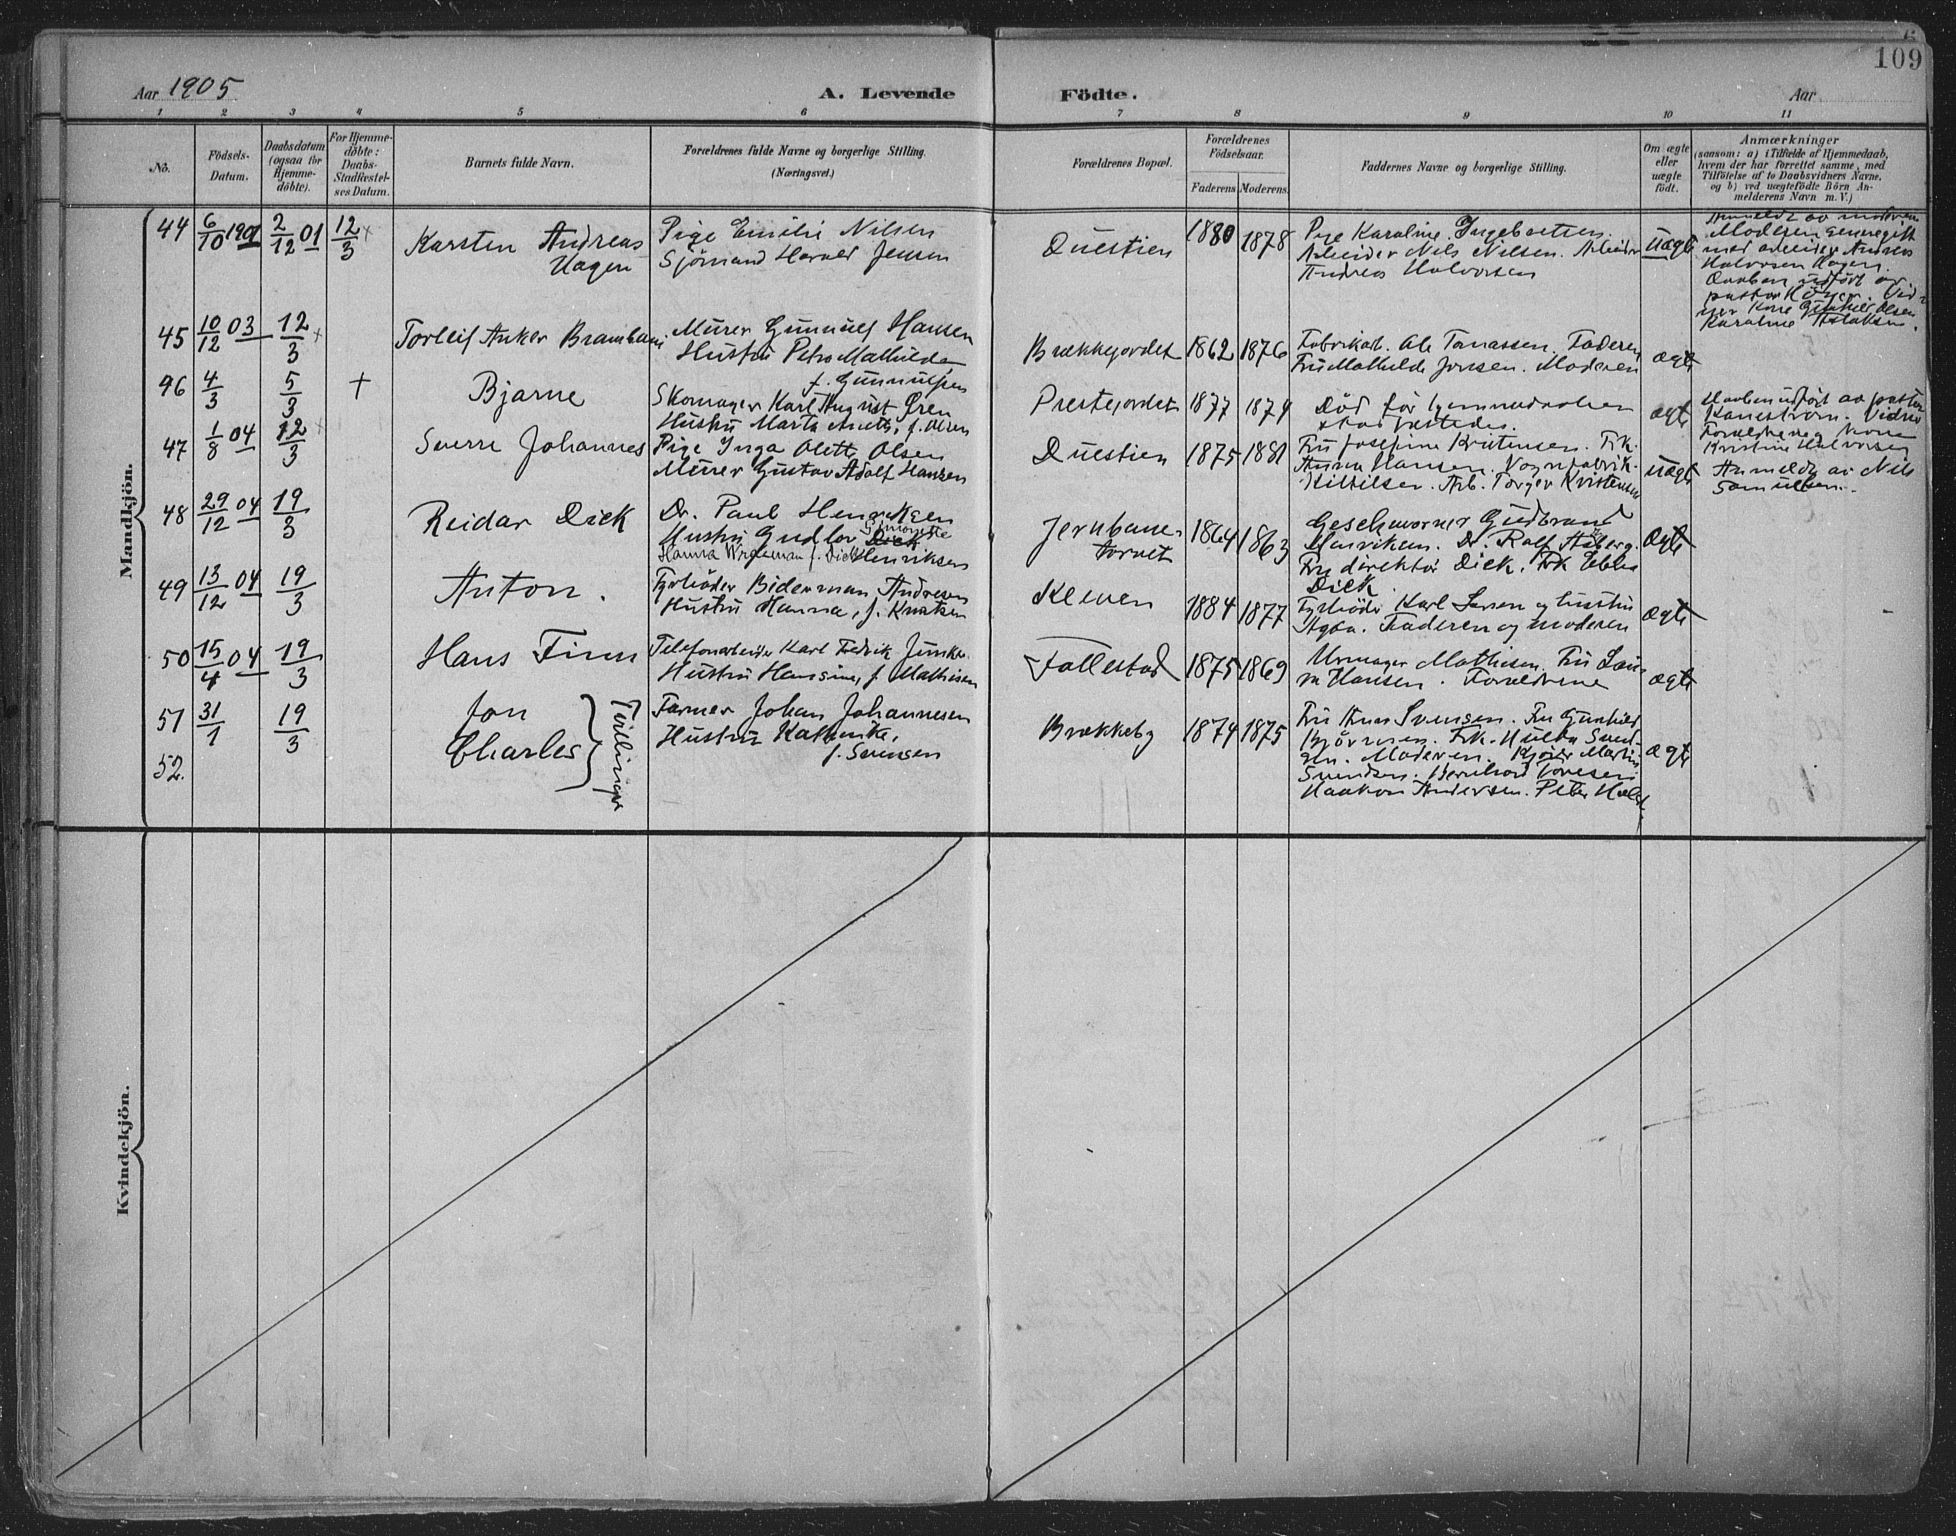 109
Aar 1905
A. Levende Födte.
Aar
1 2 3 4 5 6 7 8 9 10 11
No.
Födsels-
Datum.
Daabsdatum
(ogsaa for
Hjemme-
döbte).
For Hjemme-
döbte:
Daabs-
Stadfæstel-
ses Datum.
Barnets fulde Navn.
Forældrenes fulde Navne og borgerlige Stilling.
(Næringsvei.)
Forældrenes Bopæl.
Forældrenes
Födselsaar.
Faderens Moderens
Faddernes Navne og borgerlige Stilling.
Om ægte
eller
uægte
födt.
Anmærkninger
(saasom: a) i Tilfælde af Hjemmedaab,
hvem der har forrettet samme, med
Tilföielse af to Daabsvidners Navne,
og b) ved uægtefödte Börn An-
melderens Navn m. V.)
Mandkjön.
44 6/10 1901 2/12 01 12/3
Karsten Andreas
Hagen
Pige Emilie Nilsen
Sjömand Harald Jensen
Duestien
1880 1878
Pige Karoline Ingebretsen.
Arbeider Nils Nilsen. Arbeider
Andreas Halvorsen
uægte
Anmeldt av moderen
Moderen senere gift
med arbeider Andreas
Halvorsen Hagen.
Daaben udfört av
pastor
Karoline Aslaksen.
45 10/12 03 12/3
Torleif Anker
Murer Gunnulf Hansen
Hustru Petra Mathilde
f. Gunnulfsen
Brækkejordet 1862 1876
Fabrikarb. Ole Tanassen. Faderen
Fru Mathilde Jensen. Moderen
ægte
46 4/3 5/3 +
Bjarne
Skomager Karl August Gren
Hustru Marta Anette, f. Olsen
Prestejordet 1877 1874
Död för hjemmedaaben
stadfæstedes.
ægte
Daaben udfört av pastor
Kanestrøm. Vidner
Forældrene og Kone
Kristine Halvorsen
47 1/8 04 12/3
Sverre Johannes
Pige Inga Olette Olsen
Murer Gustav Adolf Hansen
Duestien 1875 1881
Fru Josefine Kristensen. Frk.
Anna Hansen. Vognfabrik.
Kittilsen. Arb. Torger Kristensen
uægte
Anmeldt av Nils
Samuelsen.
48 29/12 04 19/3
Reidar Dick
Dr. Paul Henriksen
Hustru Gudlov Dick
Henriksen
Jernbane-
torvet
1864 1863
Geschworner Gudbrand
Henriksen. Dr. Rolf Åsberg.
Fru direktör Dick. Frk Ebba
Dick.
ægte
49 13/12 04 19/3
Anton.
Fyrböder Biderman Andresen
Hustru Hanna, f. Knutsen
Kleven 1884 1877
Fyrböder Karl Larsen og hustru
Agda. Faderen og moderen
ægte
50 15/4 04 19/3
Hans Finn
Telefonarbeider Karl Fredrik Junker
Hustru Hansine, f. Mathisen
Follestad 1875 1869
Urmager Mathisen. Fru Lau-
ra Hansen. Forældrene
ægte
51 31/1 19/3
52.
Jon
Charles
Tvillinger
Farmer Johan Johannesen
Hustru Kathinka,
f. Svensen
Brækkeby 1874 1875
Fru Anna Svensen. Fru Gunhild
Björnsen. Frk. Hulda Svend-
sen. Moderen. Kjörer Martin
Svendsen. Bernhard Toresen
Haakon Andersen. Peter
ægte
Kvindekjön.